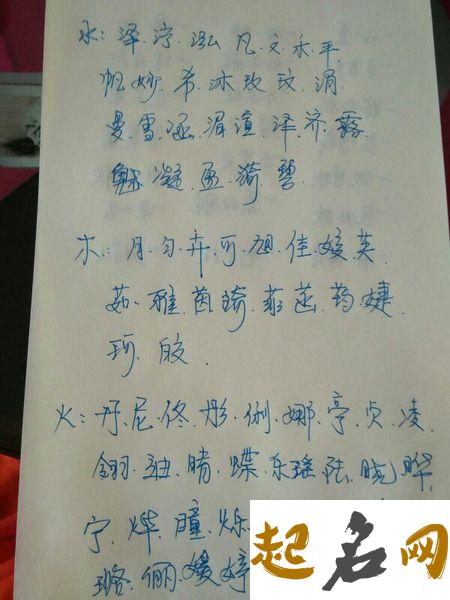 水:泽.泞.泓.凡.文.禾.平.
帆妙.希.沐玫.玟.湄
曼雪.涵.湄渲.泽.济.露
魅.凝.盈.漪.碧.
木:月.匀.卉.可.旭.佳媛芙
茹.雅茵琦.菲.茁.荺.婕.
珂.皎.
火:丹.尼.佟.彤.俐.娜.亭.贞.凌.
翎.迪.晴.蝶.东瑶.陆.晓晔.
宁.烨.瞳.烁
璐.俪.媛婷
起名网